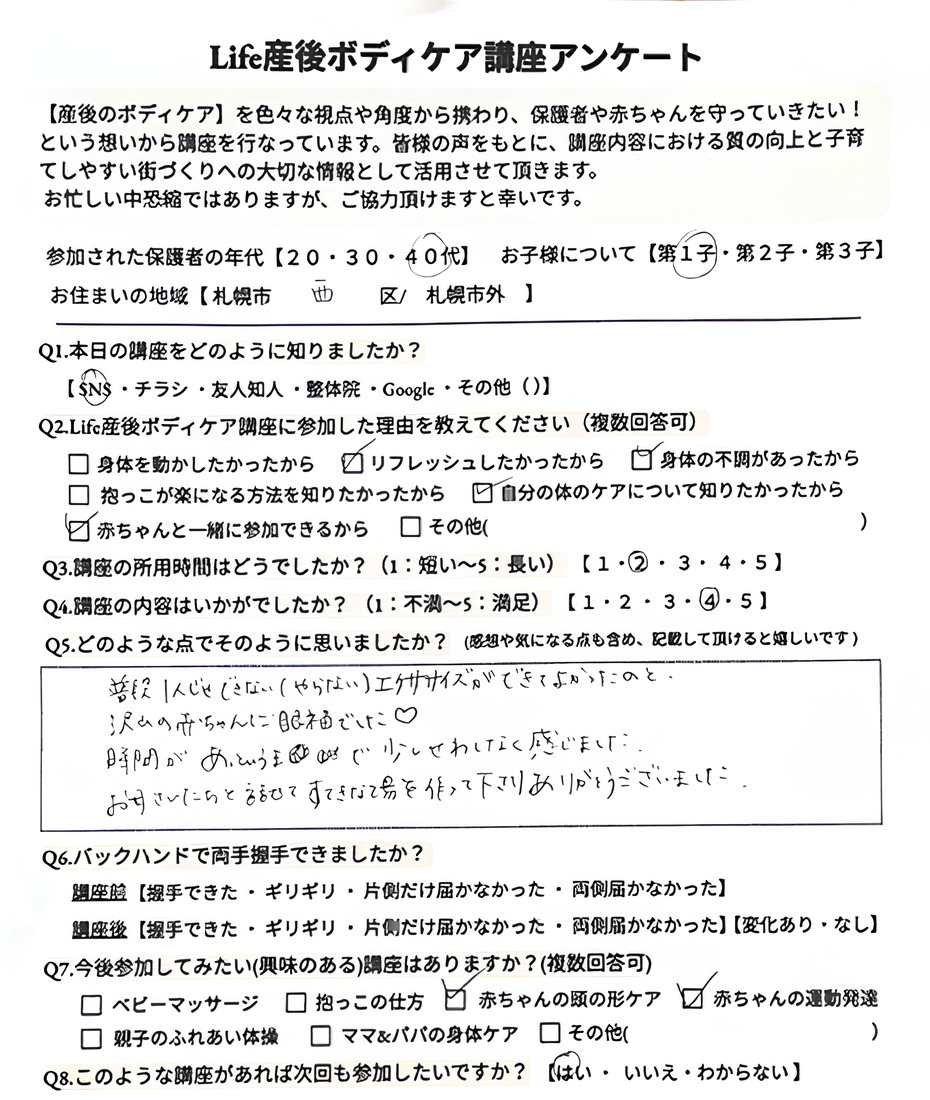 Life産後ボディケア講座アンケート
【産後のボディケア】を色々な視点や角度から携わり、保護者や赤ちゃんを守っていきたい！
という想いから講座を行なっています。皆様の声をもとに、講座内容における質の向上と子育
てしやすい街づくりへの大切な情報として活用させて頂きます。
お忙しい中恐縮ではありますが、ご協力頂けますと幸いです。
参加された保護者の年代【２０・３０・４０代】　お子様について【第１子・第２子・第３子】
お住まいの地域【 札幌市　西　区/　札幌市外　】
Q1.本日の講座をどのように知りましたか？
【 SNS ・チラシ ・友人知人 ・整体院 ・Google ・その他（ )】
Q2.Life産後ボディケア講座に参加した理由を教えてください（複数回答可）
☐ 身体を動かしたかったから　☑ リフレッシュしたかったから　☑ 身体の不調があったから
☐ 抱っこが楽になる方法を知りたかったから　☑ 自分の体のケアについて知りたかったから
☑ 赤ちゃんと一緒に参加できるから　☐ その他(　)
Q3.講座の所用時間はどうでしたか？（1：短い〜5：長い）【 1・②・3・4・5 】
Q4.講座の内容はいかがでしたか？（1：不満〜5：満足）【 1・2・3・④・5 】
Q5.どのような点でそのように思いましたか？（感想や気になる点も含め、記載して頂けると嬉しいです）
普段 1人じゃできない(やらない)エクササイズができてよかったのと、
沢山の赤ちゃんに眼福でした♡
時間が あっというまで 少しせわしなく感じました。
お母さんたちと話せて すてきな場を作って下さりありがとうございました。
Q6.バックハンドで両手握手できましたか？
講座前【握手できた ・ ギリギリ ・ 片側だけ届かなかった ・ 両側届かなかった】
講座後【握手できた ・ ギリギリ ・ 片側だけ届かなかった ・ 両側届かなかった】【変化あり・なし】
Q7.今後参加してみたい(興味のある)講座はありますか？(複数回答可)
☐ ベビーマッサージ　☐ 抱っこの仕方　☑ 赤ちゃんの頭の形ケア　☑ 赤ちゃんの運動発達
☐ 親子のふれあい体操　☐ ママ&パパの身体ケア　☐ その他(　)
Q8.このような講座があれば次回も参加したいですか？　【はい ・ いいえ・わからない】